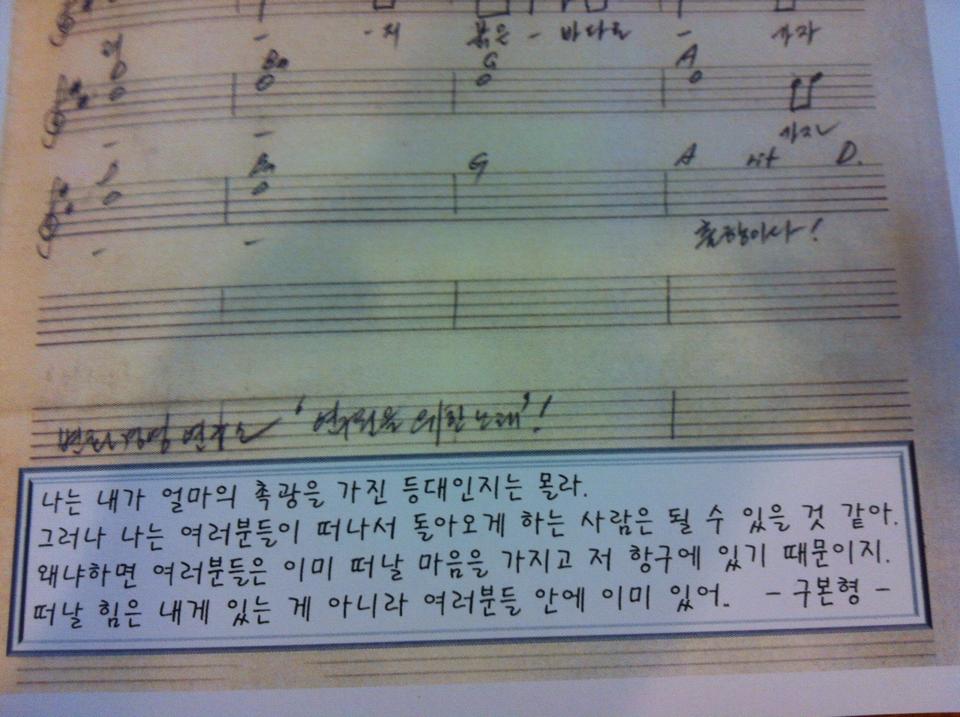 -저 붉은 - 바다로 - 가자
Bm G A
가자
D Bm G A rit D.
출항이다!
변화경영연구소 '연구원을 위한 노래'!
나는 내가 얼마의 촉광을 가진 등대인지는 몰라.
그러나 나는 여러분들이 떠나서 돌아오게 하는 사람은 될 수 있을 것 같아.
왜냐하면 여러분들은 이미 떠날 마음을 가지고 저 항구에 있기 때문이지.
떠날 힘은 내게 있는 게 아니라 여러분들 안에 이미 있어. - 구본형 -